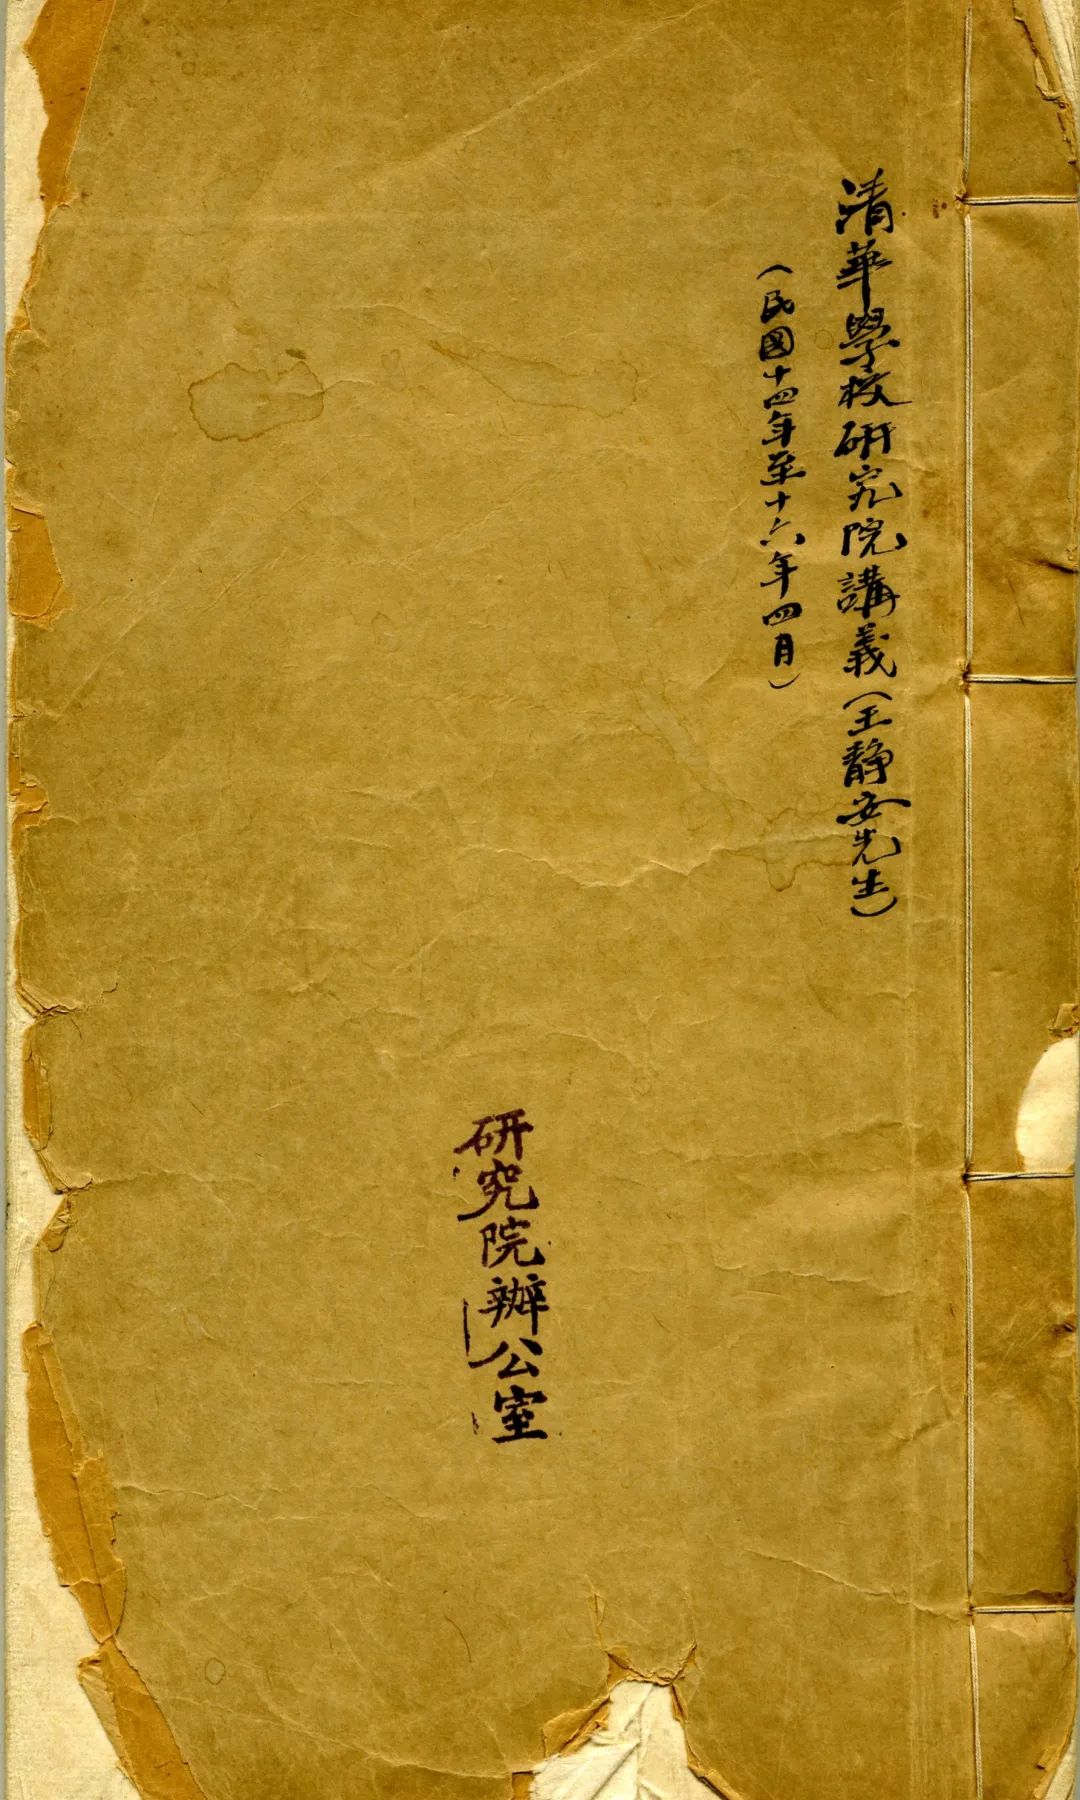 清華學校研究院講義(王静安先生)
(民國十四年至十六年四月)
研究院辦公室